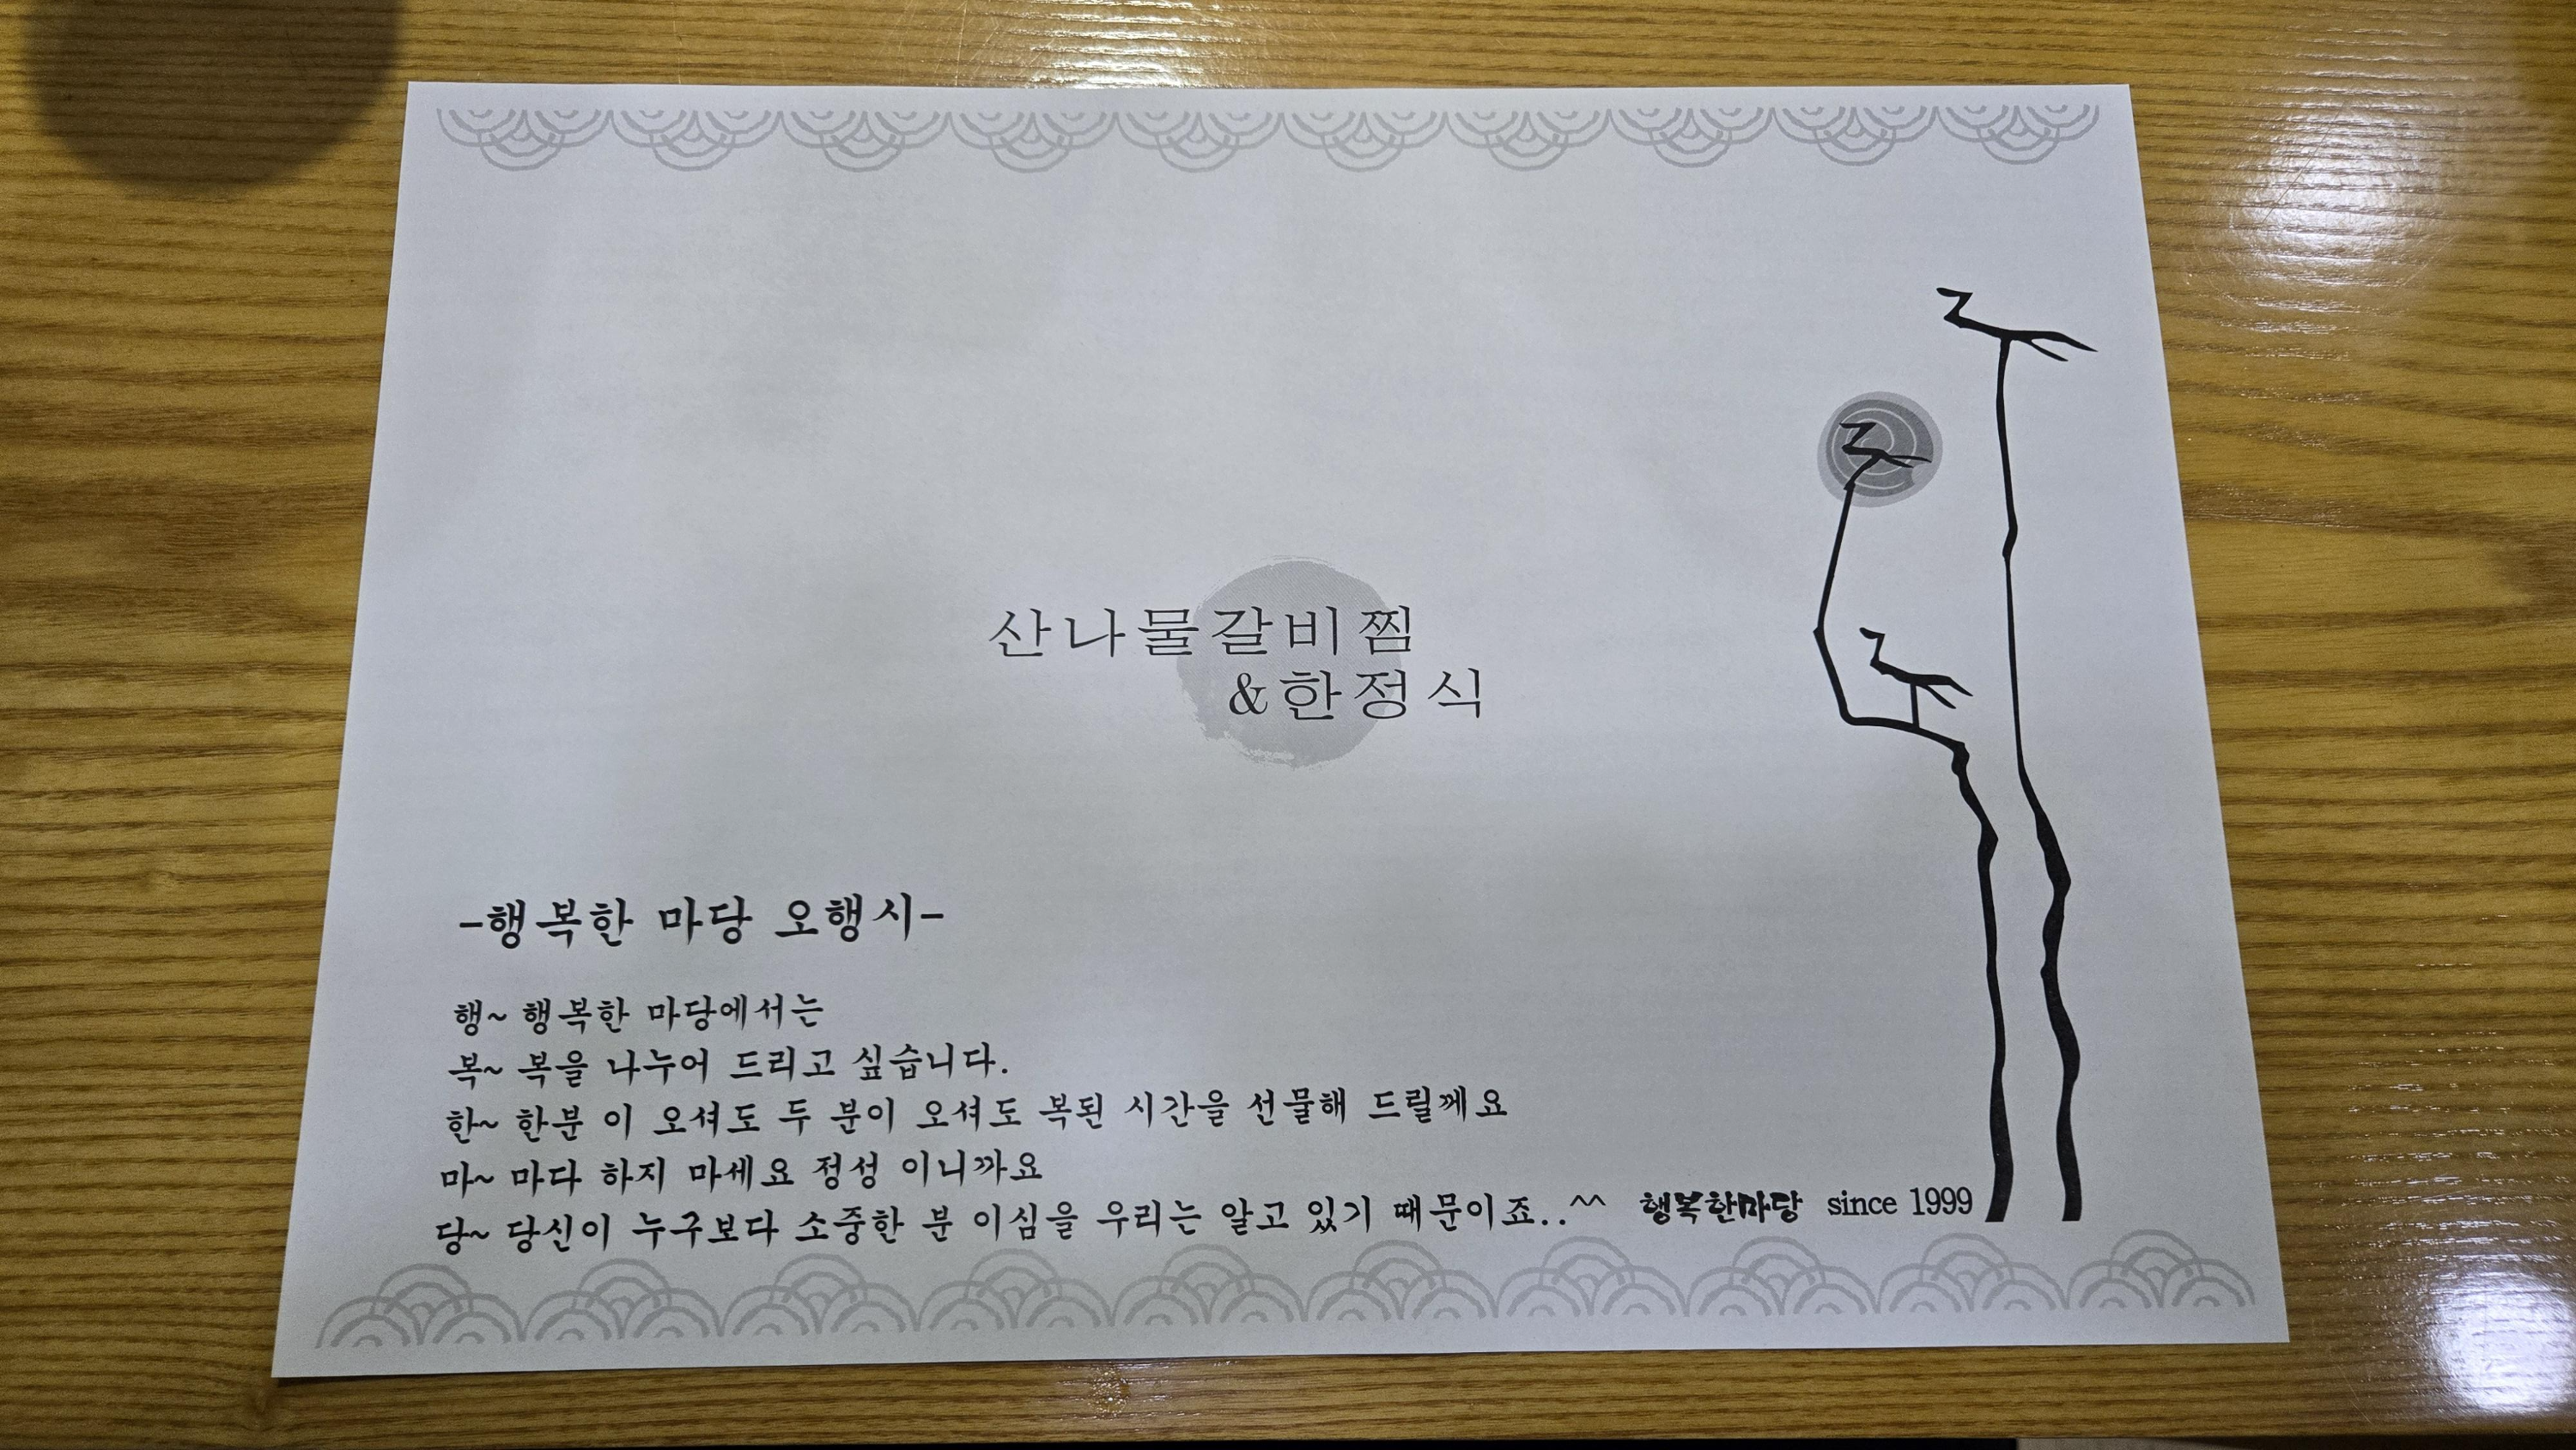 산나물갈비찜
&한정식
-행복한 마당 오행시-
행~ 행복한 마당에서는
복~ 복을 나누어 드리고 싶습니다.
한~ 한분 이 오셔도 두 분이 오셔도 복된 시간을 선물해 드릴께요
마~ 마다 하지 마세요 정성 이니까요
당~ 당신이 누구보다 소중한 분 이심을 우리는 알고 있기 때문이죠..^^ 행복한마당 since 1999